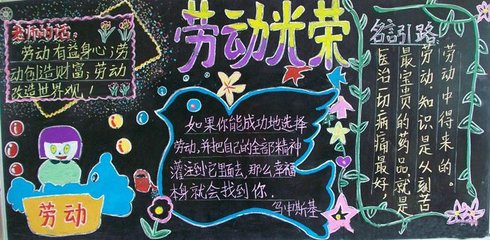 老师的话:
劳动有益身心;劳
动创造财富;劳动
改造世界观!
劳动
劳动光荣
如果你能成功地选择
劳动,并把自己的全部精神
灌注到它里面去,那么幸福
本身就会找到你.
乌申斯基
名言引路
劳动中得来的。
劳动,知识是从刻苦
最宝贵的药品,就是
医治一切病痛最好,